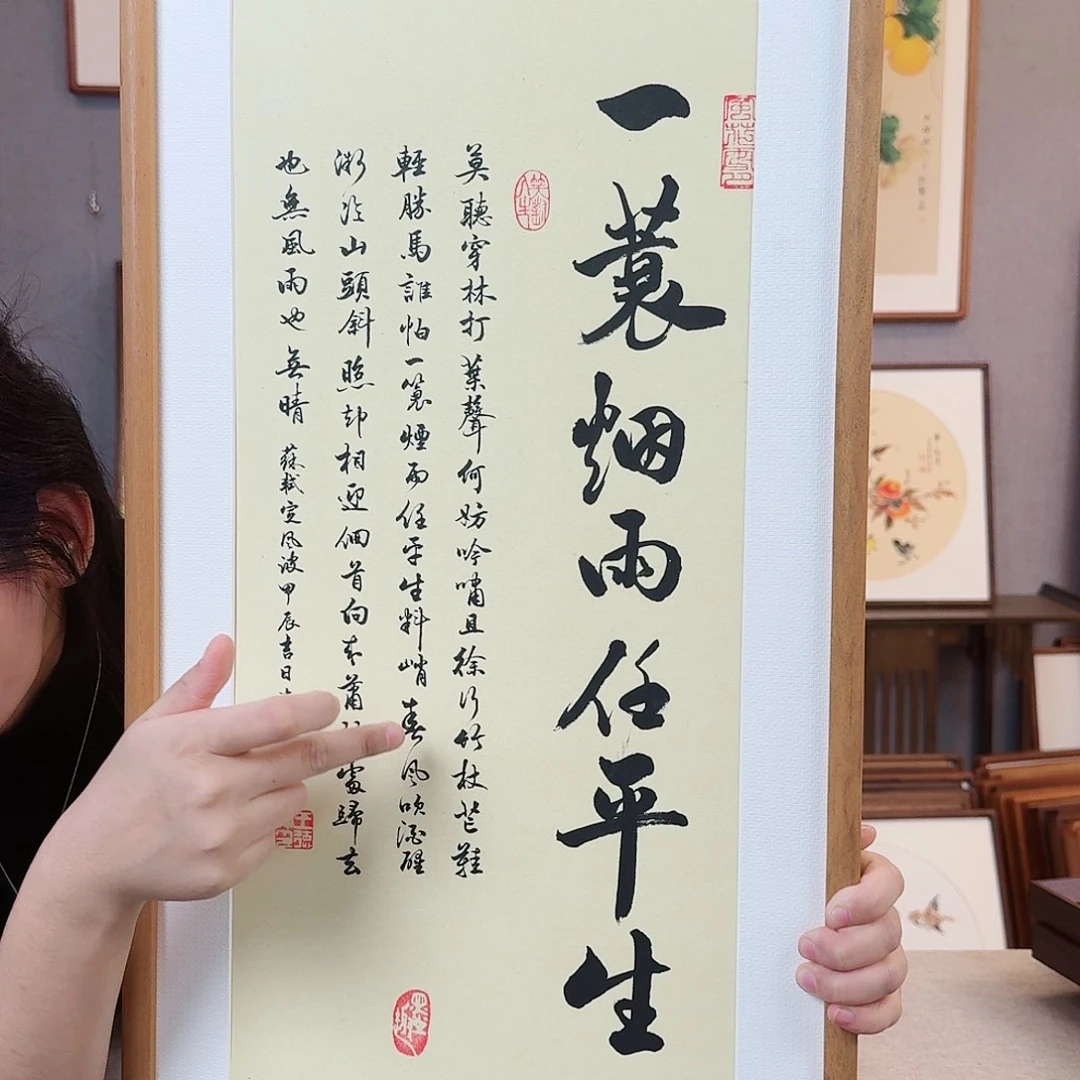 一蓑烟雨任平生
笑對人生
莫聽穿林打葉聲何妨吟嘯且徐行竹杖芒鞋
輕勝馬誰怕一蓑煙雨任平生料峭春風吹酒醒
微冷山頭斜照却相迎回首向來蕭處歸去
也無風雨也無晴 蘇軾定風波甲辰吉日